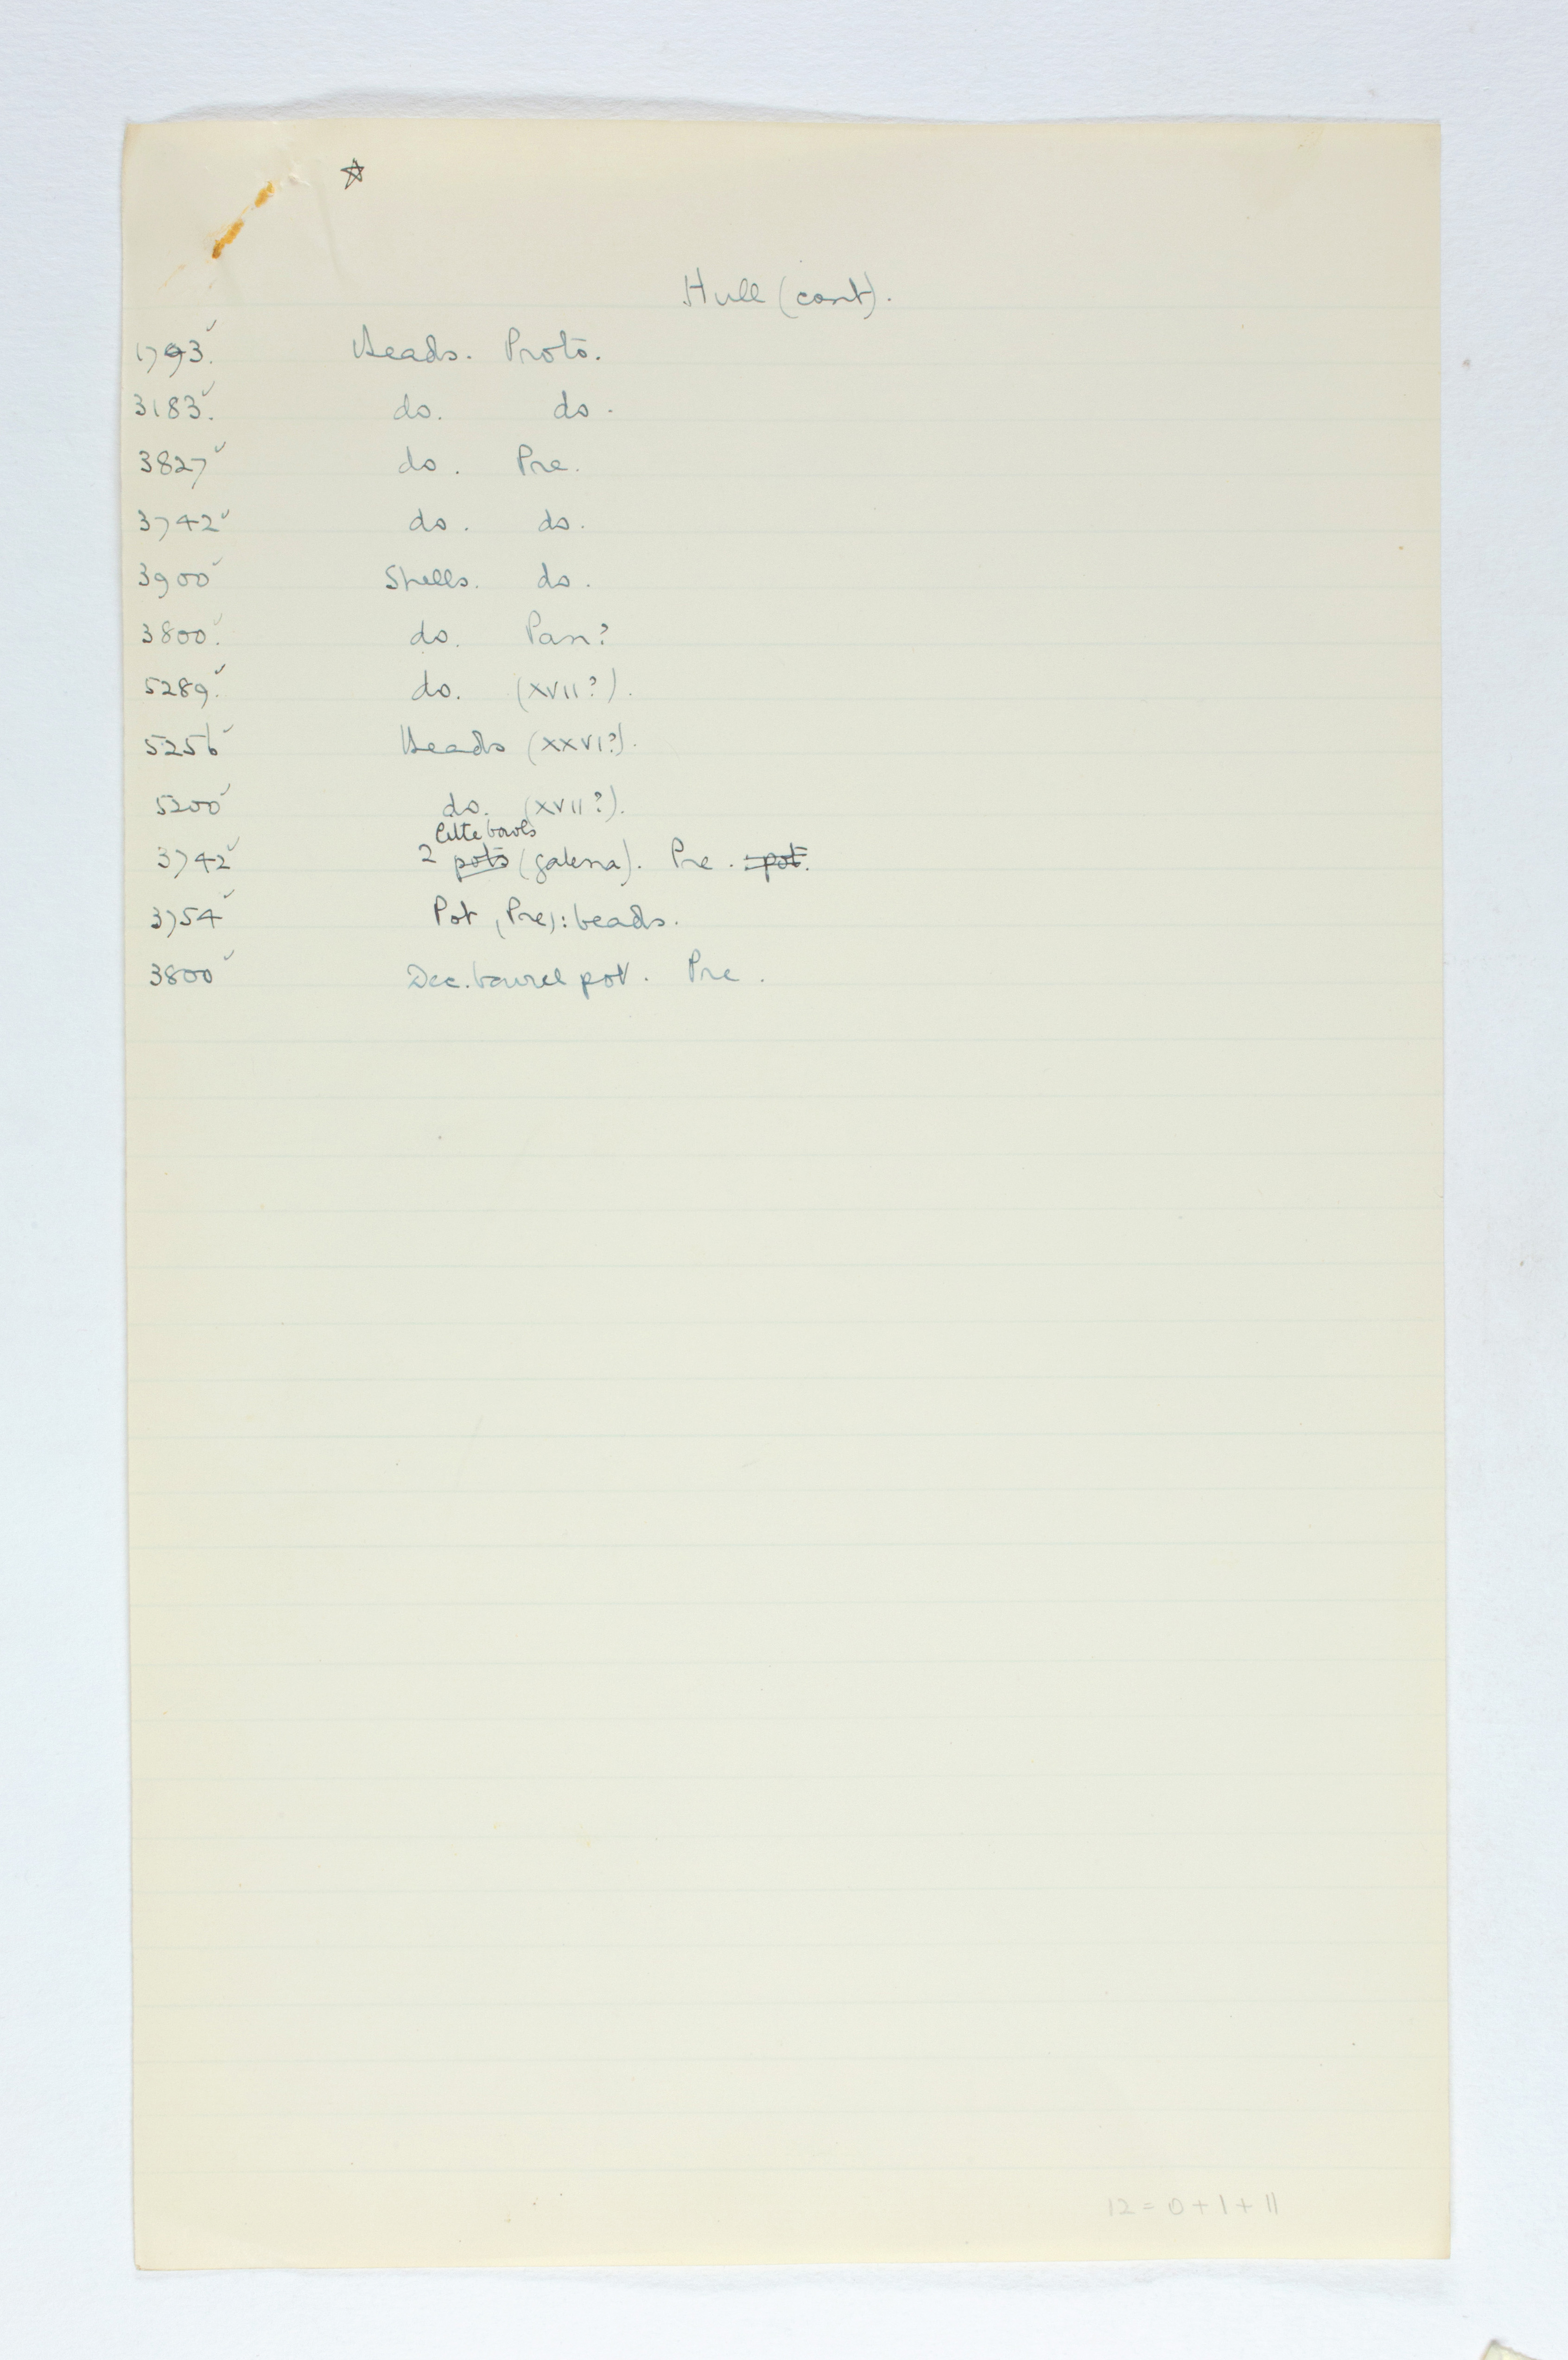 ☆
Hull (cont).
1793. ✓ Beads. Proto.
3183. ✓ do. do.
3827 ✓ do. Pre.
3742 ✓ do. do.
3900 ✓ Shells. do.
3800. ✓ do. Pan?
5289. ✓ do. (XVII?).
5256 ✓ Beads (XXVI?).
5200 ✓ do. (XVII?).
little bowls
3742 ✓ 2 pots (galena). Pre. pot.
3754 ✓ Pot (Pre): beads.
3800 ✓ Dec. barrel pot. Pre.
12 = 0 + 1 + 11